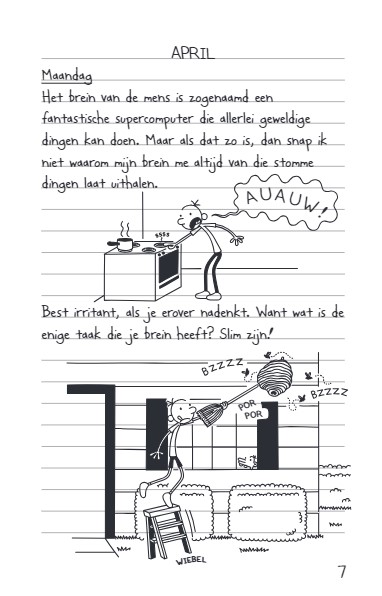 APRIL
Maandag
Het brein van de mens is zogenaamd een
fantastische supercomputer die allerlei geweldige
dingen kan doen. Maar als dat zo is, dan snap ik
niet waarom mijn brein me altijd van die stomme
dingen laat uithalen.
AUAUW!
ssss
Best irritant, als je erover nadenkt. Want wat is de
enige taak die je brein heeft? Slim zijn!
BZZZZ
BZZZZ
POR
POR
WIEBEL
7